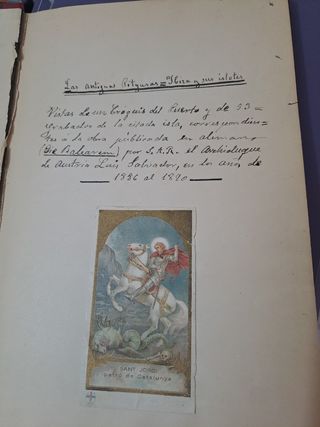 Las antiguas Pityusas = Ibiza y sus islotes
Vistas de un Croquis del Puerto y de 53
grabados de la citada isla, correspondien-
tes a la obra publicada en alemán
(Die Balearen) por S.A.R. el Archiduque
de Austria Luis Salvador, en los años de
1886 al 1890
SANT JORDI
patró de Catalunya